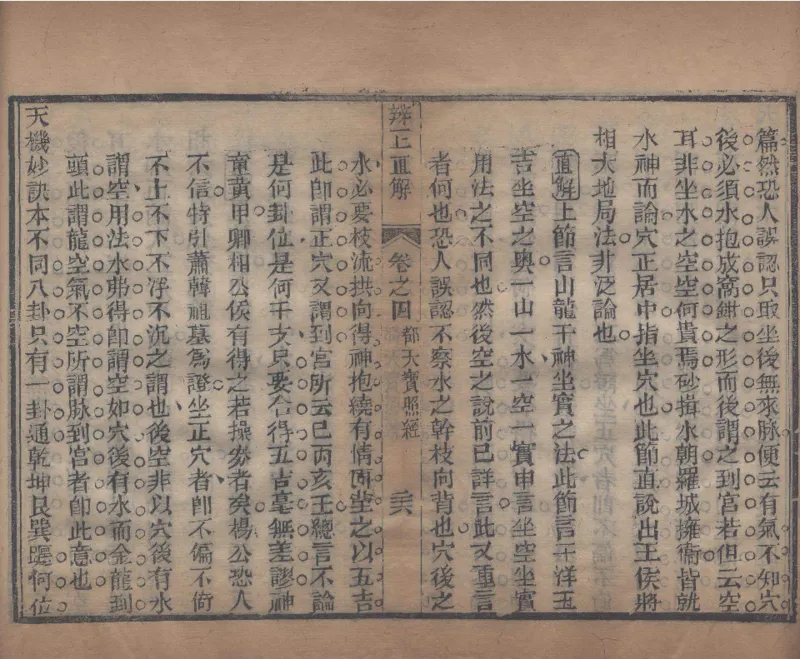 篇然恐人誤認只取坐後無來脉便云有氣不知穴
後必須水抱成窩鉗之形而後謂之到宮若但云空
耳非坐水之空空何貴焉砂揖水朝羅城擁衛皆就
水神而論穴正居中指坐穴也此節直說出王侯將
相大地局法非泛論也
直解上節言山龍干神坐實之法此節言平洋五
吉坐空之奧一山一水一空一實申言坐空坐實
用法之不同也然後空之說前已詳言此又重言
者何也恐人誤認不察水之幹枝向背也穴後之
辨正直解 卷之四 都天寶照經 三六
水必要枝流拱向得神抱繞有情而坐之以五吉
此卽謂正穴又謂到宮所云巳丙亥壬總言不論
是何卦位是何干支只要合得五吉墓無差謬神
童黃甲卿相公侯有得之若操券者矣楊公恐人
不信特引蕭韓祖墓爲證坐正穴者卽不偏不倚
不上不下不浮不沉之謂也後空非以穴後有水
謂空用法水弗得卽謂空如穴後有水而金龍到
頭此謂龍空氣不空所謂脉到宮者卽此意也
天機妙訣本不同八卦只有一卦通乾坤艮巽躔何位